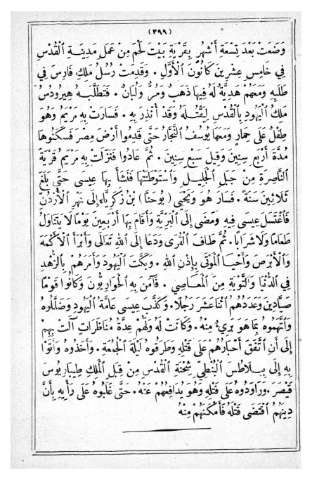 (٣٩٩)
وَضَعَتْ بَعْدَ تِسْعَةِ أَشْهُرٍ بِقَرْيَةِ بَيْتَ لَحْمَ مِنْ عَمَلِ مَدِينَةِ الْقُدْسِ
فِي خَامِسِ عِشْرِينَ كَانُونَ الْأَوَّلِ. وَقَدِمَتْ رُسُلُ مَلِكِ فَارِسَ فِي
طَلَبِهِ وَمَعَهُمْ هَدِيَّةٌ لَهُ فِيهَا ذَهَبٌ وَمُرٌّ وَلُبَانٌ. فَتَطَلَّبَهُ هِيرُودُسُ
مَلِكُ الْيَهُودِ بِالْقُدْسِ لِيَقْتُلَهُ وَقَدْ أُنْذِرَ بِهِ. فَسَارَتْ بِهِ مَرْيَمُ وَهُوَ
طِفْلٌ عَلَى حِمَارٍ وَمَعَهَا يُوسُفُ النَّجَّارُ حَتَّى قَدِمُوا أَرْضَ مِصْرَ فَسَكَنُوهَا
مُدَّةَ أَرْبَعِ سِنِينَ وَقِيلَ سَبْعَ سِنِينَ. ثُمَّ عَادُوا فَنَزَلَتْ بِهِ مَرْيَمُ قَرْيَةَ
النَّاصِرَةِ مِنْ جَبَلِ الْجَلِيلِ وَاسْتَوْطَنَتْهَا فَنَشَأَ بِهَا عِيسَى حَتَّى بَلَغَ
ثَلَاثِينَ سَنَةً. فَسَارَ هُوَ وَيَحْيَى (يُوحَنَّا) ابْنُ زَكَرِيَّاءَ إِلَى نَهْرِ الْأُرْدُنِّ
فَاغْتَسَلَ عِيسَى فِيهِ وَمَضَى إِلَى الْبَرِّيَّةِ وَأَقَامَ بِهَا أَرْبَعِينَ يَوْمًا لَا يَتَنَاوَلُ
طَعَامًا وَلَا شَرَابًا. ثُمَّ طَافَ الْقُرَى وَدَعَا إِلَى اللهِ تَعَالَى وَأَبْرَأَ الْأَكْمَهَ
وَالْأَبْرَصَ وَأَحْيَا الْمَوْتَى بِإِذْنِ اللهِ. وَبَكَّتَ الْيَهُودَ وَأَمَرَهُمْ بِالزُّهْدِ
فِي الدُّنْيَا وَالتَّوْبَةِ مِنَ الْمَعَاصِي. فَآمَنَ بِهِ الْحَوَارِيُّونَ وَكَانُوا قَوْمًا
صَيَّادِينَ وَعَدَدُهُمُ اثْنَا عَشَرَ رَجُلًا. وَكَذَّبَ عِيسَى عَامَّةُ الْيَهُودِ وَضَلَّلُوهُ
وَاتَّهَمُوهُ بِمَا هُوَ بَرِيءٌ مِنْهُ. وَكَانَتْ لَهُ وَلَهُمْ عِدَّةُ مُنَاظَرَاتٍ آلَتْ بِهِمْ
إِلَى أَنِ اتَّفَقَ أَحْبَارُهُمْ عَلَى قَتْلِهِ وَطَرَقُوهُ لَيْلَةَ الْجُمْعَةِ. وَأَخَذُوهُ وَأَتَوْا
بِهِ إِلَى بِيلَاطُسَ الْبُنْطِيِّ شِحْنَةِ الْقُدْسِ مِنْ قِبَلِ الْمَلِكِ طِيبَارِيُوسَ
قَيْصَرَ. وَرَاوَدُوهُ عَلَى قَتْلِهِ وَهُوَ يُدَافِعُهُمْ عَنْهُ. حَتَّى غَلَبُوهُ عَلَى رَأْيِهِ بِأَنَّ
دِينَهُمُ اقْتَضَى قَتْلَهُ فَأَمْكَنَهُمْ مِنْهُ